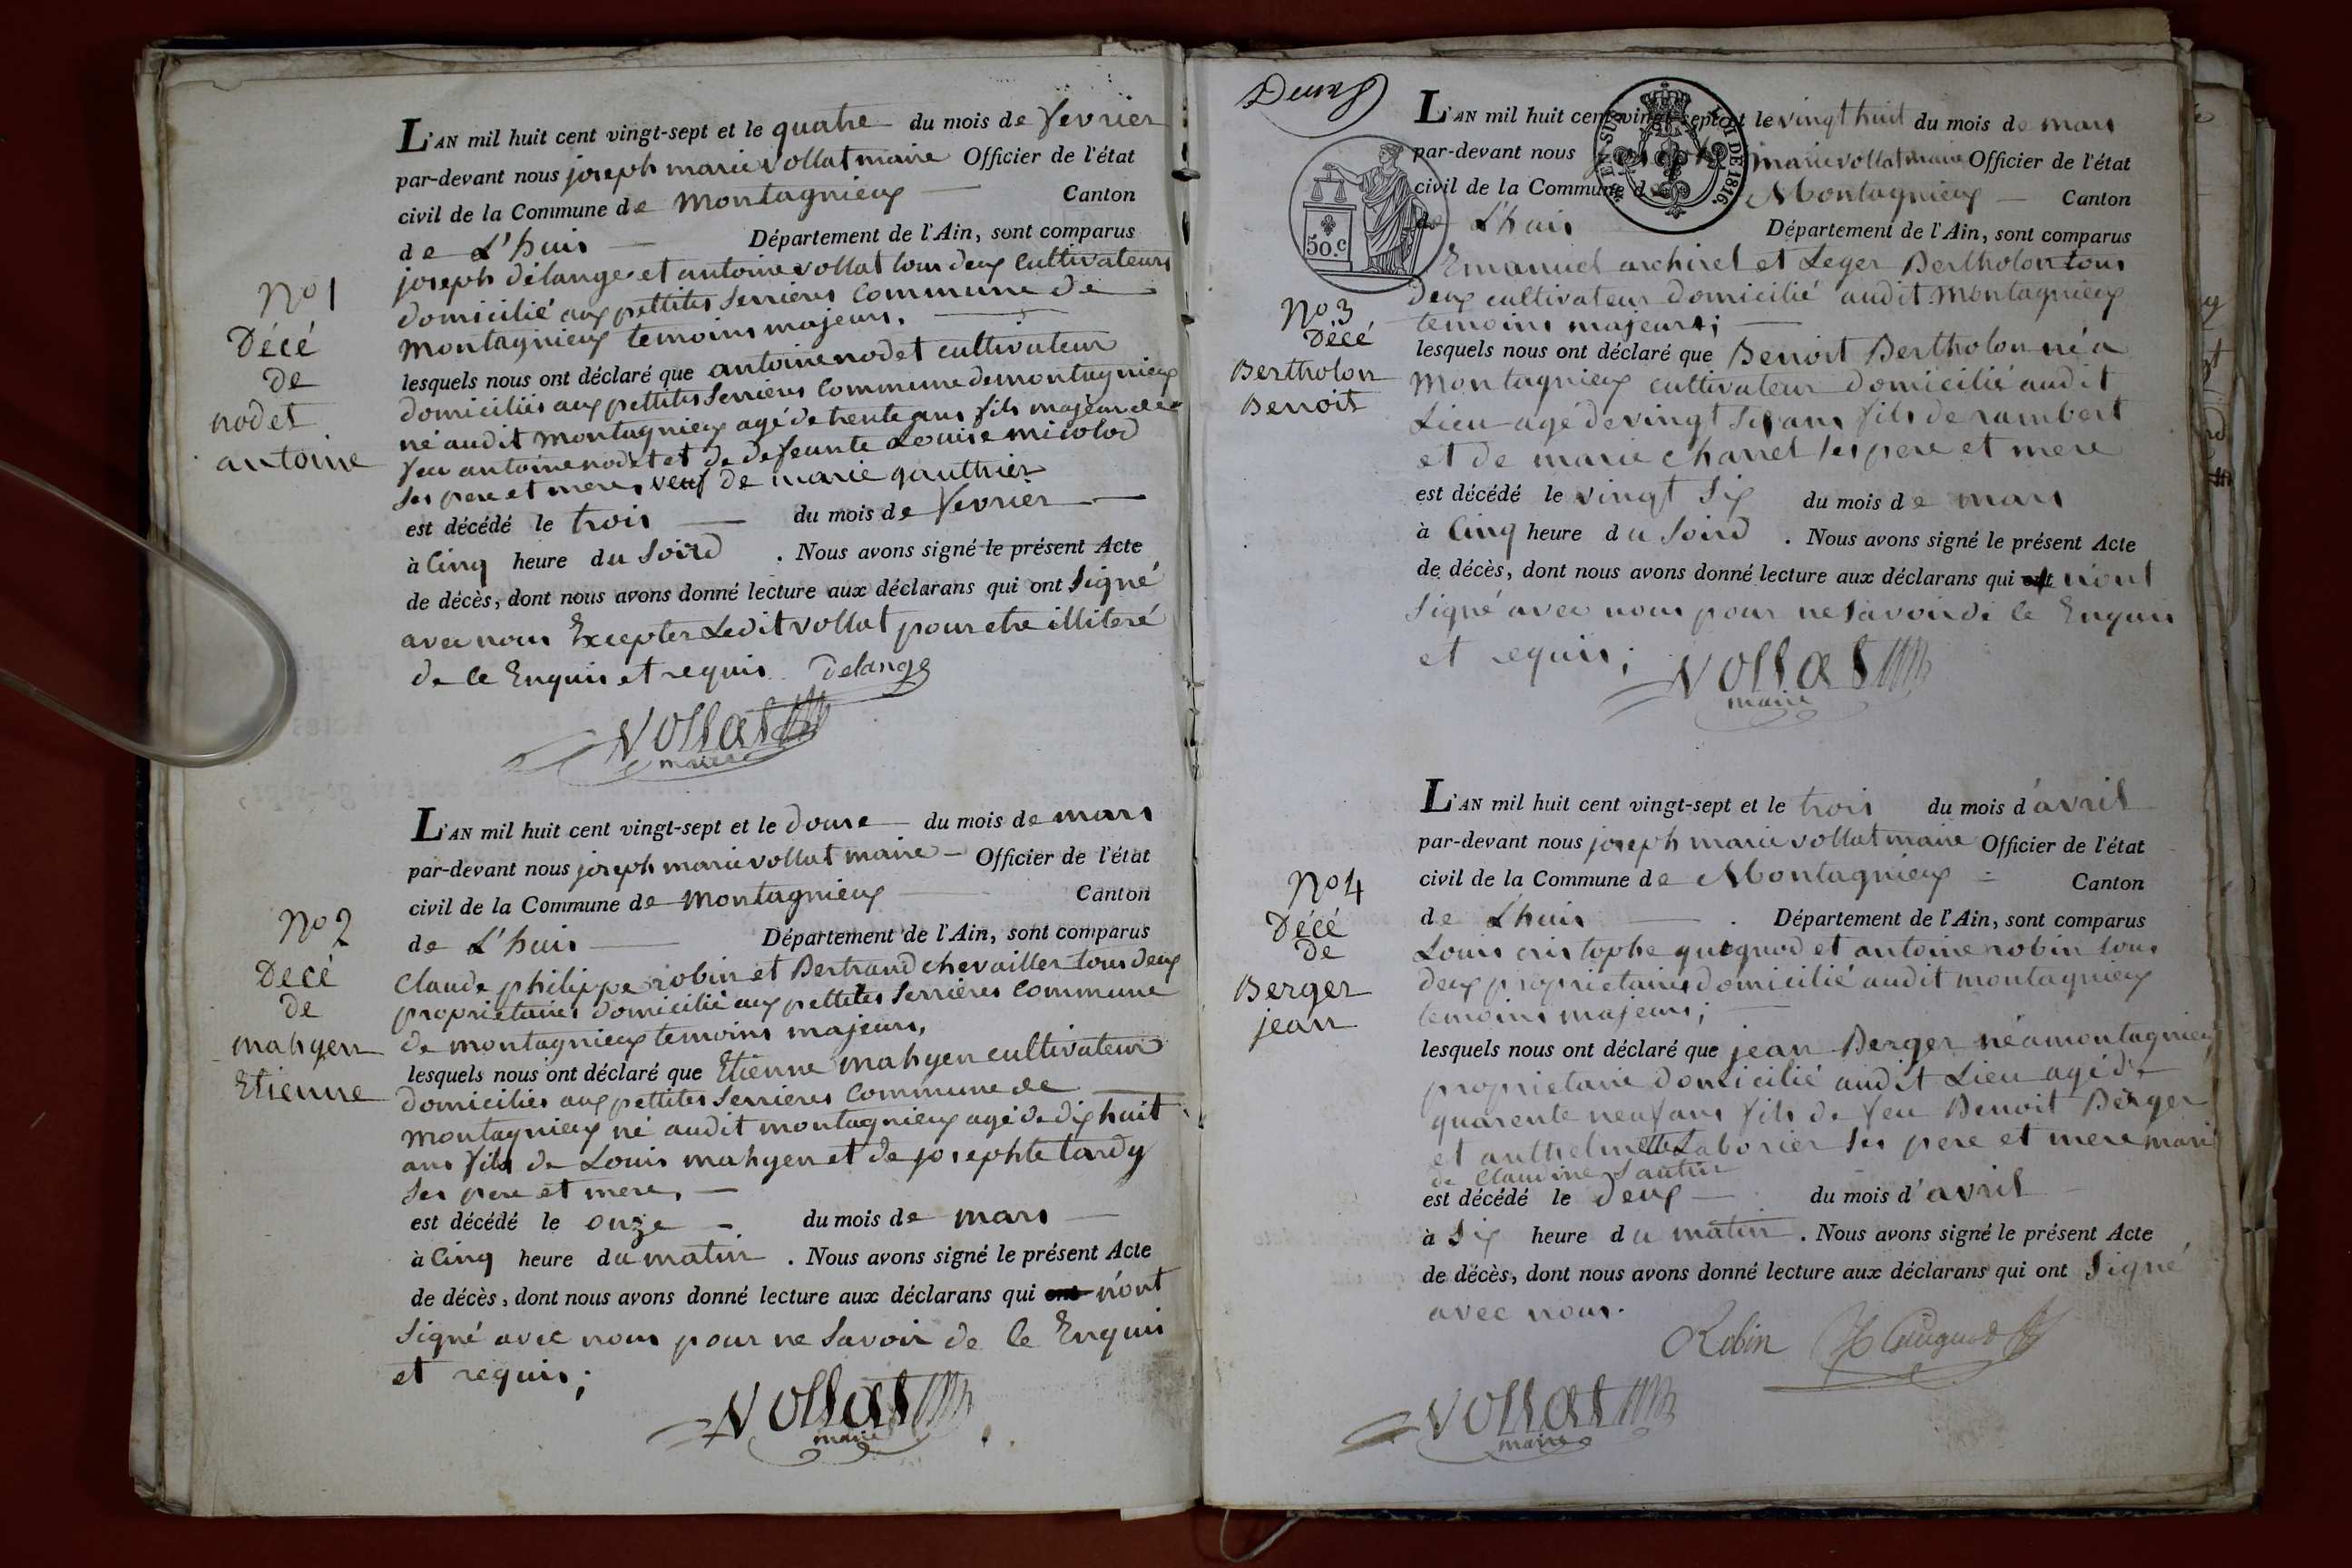 L'AN mil huit cent vingt-sept et le quatre du mois de fevrier
par-devant nous joseph marie vollat maire Officier de l'état
civil de la Commune de Montagnieux Canton
de L'huis Département de l'Ain, sont comparus
joseph délange et antoine vollat tous deux cultivateurs
domicilié aux pettites Serrieres Commune de
Montagnieux temoins majeurs.
lesquels nous ont déclaré que antoine nodet cultivateur
domiciliés aux pettites Serrieres Commune de montagnieux
né audit Montagnieux agé de trente ans fils majeur de
feu antoine nodet et de defeunte Louise micolod
ses pere et mere, veuf de marie gauthier
est décédé le trois du mois de fevrier
à Cinq heure du Soird . Nous avons signé le présent Acte
de décès, dont nous avons donné lecture aux déclarans qui ont Signé
avec nous Excepter Ledit vollat pour etre illiteré
de ce Enquis et requis Delange
Vollat
maire
No 1
Décé
de
nodet
antoine
L'AN mil huit cent vingt-sept et le douse du mois de mars
par-devant nous joseph marie vollat maire Officier de l'état
civil de la Commune de Montagnieux Canton
de L'huis Département de l'Ain, sont comparus
Claude philippe robin et Bertrand chevailler tous deux
proprietaires domicilié aux pettites Serrieres Commune
de montagnieux temoins majeurs,
lesquels nous ont déclaré que Etienne mahyen cultivateur
domiciliés aux pettites Serrieres Commune de
Montagnieux né audit montagnieux agé de dix huit
ans fils de Louis mahyen et de josephte tardy
ses pere et mere,
est décédé le onze du mois de mars
à Cinq heure du matin . Nous avons signé le présent Acte
de décès, dont nous avons donné lecture aux déclarans qui ont n'ont
Signé avec nous pour ne Savoir de ce Enquis
et requis;
Vollat
maire
No 2
Decé
de
mahyen
Etienne
Deux
L'AN mil huit cent vingt-sept et le vingt huit du mois de mars
par-devant nous marie vollat maire Officier de l'état
civil de la Commune de Montagnieux Canton
de L'huis Département de l'Ain, sont comparus
Emanuel archirel et Leger Bertholon tous
deux cultivateur domicilié audit Montagnieux
temoins majeurs;
lesquels nous ont déclaré que Benoit Bertholon né a
Montagnieux cultivateur domicilié audit
Lieu agé de vingt six ans fils de rambert
et de marie charrel ses pere et mere
est décédé le vingt Six du mois de mars
à Cinq heure du Soird . Nous avons signé le présent Acte
de décès, dont nous avons donné lecture aux déclarans qui ont n'ont
Signé avec nous pour ne Savoir de ce Enquis
et requis;
Vollat
maire
LOI DE 1816.
50.c
No 3
Décé
Bertholon
Benoit
L'AN mil huit cent vingt-sept et le trois du mois d'avril
par-devant nous joseph marie vollat maire Officier de l'état
civil de la Commune de Montagnieux Canton
de L'huis Département de l'Ain, sont comparus
Louis cristophe quoquod et antoine robin tous
deux proprietaires domicilié audit montagnieux
temoins majeurs;
lesquels nous ont déclaré que jean Berger né a montagnieux
proprietaire domicilié audit Lieu agé de
quarente neuf ans fils de feu Benoit Berger
et anthelmette Laborier ses pere et mere mari
de Claudine Sautin
est décédé le deux du mois d'avril
à Six heure du matin . Nous avons signé le présent Acte
de décès, dont nous avons donné lecture aux déclarans qui ont Signé
avec nous.
Robin
Vollat
maire
No 4
Décé
de
Berger
jean